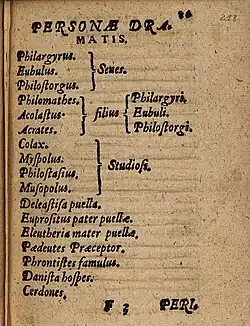 PERSONÆ DRA-
MATIS.
Philargyrus.
Eubulus.
Philostorgus.
Senes.
Philomathes.
Acolastus.
Acrates.
filius
Philargyri.
Eubuli.
Philostorgi.
Colax.
Myspolus.
Philostasius.
Musopolus.
Studiosi.
Deleastisa puella.
Euprositus pater puellæ.
Eleutheria mater puellæ.
Pædeutes Præceptor.
Phrontistes famulus.
Danista hospes.
Cerdones.
F 3
PERI-